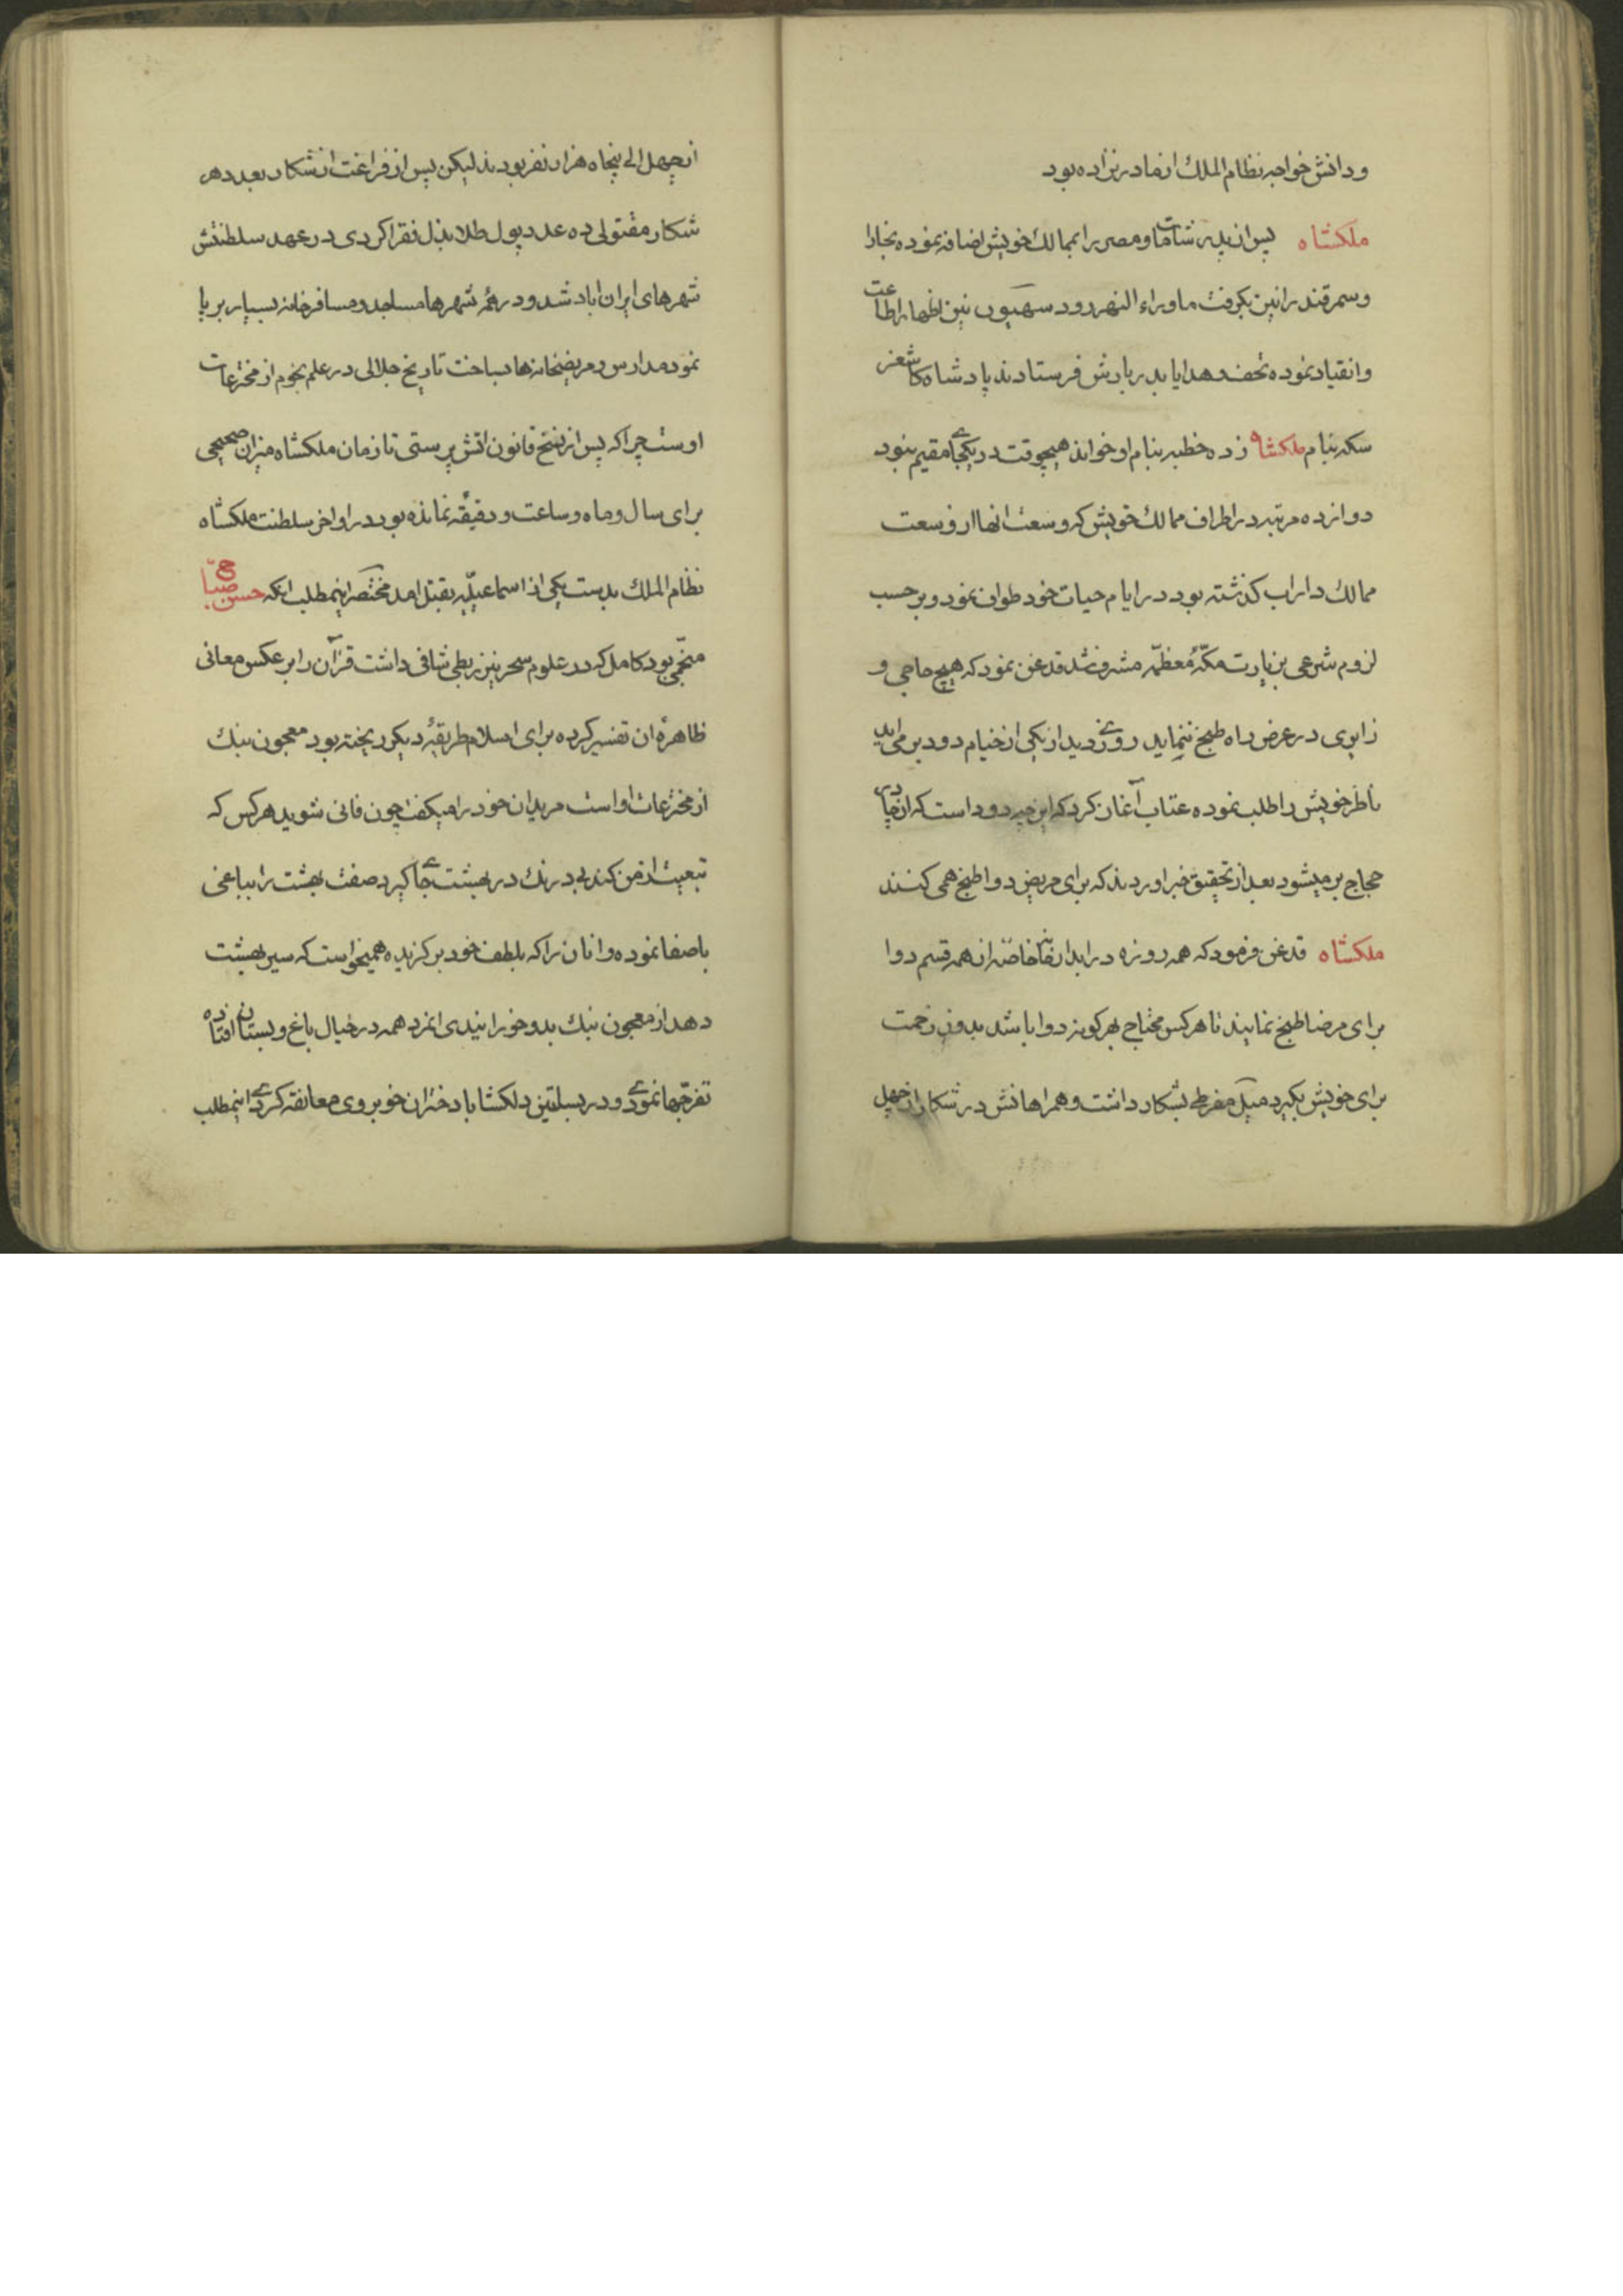 ودانش خواجه نظام الملك از مادر نزاده بود
ملكشاه پس از پدر شامات ومصر را بممالك خویش اضافه نموده بخارا
وسمرقند را نیز بكرفت ماوراء النهر رود سیحون نیز اظهار اطاعت
وانقیاد نموده تحف وهدایا بدربارش فرستادند پادشاه كاشغر
سكه بنام ملكشاه زده خطبه بنام او خواند هیچوقت در یكجای مقیم نبود
دوازده مرتبه در اطراف ممالك خویش كه وسعت انها از وسعت
ممالك داراب كذشته بود در ایام حیات خود طواف نمود وبر حسب
لزوم شرعی بزیارت مكّهٔ معظّمه مشرف شد قدغن نمود كه هیچ حاجی و
زایری در عرض راه طبخ ننماید روزی دید از یكی از خیام دود بر می اید
ناظر خویش را طلب نموده عتاب آغاز كرد كه این چه دود است كه از چادر
حجاج بر میشود بعد از تحقیق خبر اوردند كه برای مریض دوا طبخ همی كنند
ملكشاه قدغن فرمود كه همه روزه در ابدارخانه خاصّه از همه قسم دوا
برای مرضا طبخ نمایند تا هر كس محتاج بهر كونه دوا باشد بدون زحمت
برای خویش بكیرد میل مفرطی بشكار داشت وهمراهانش در شكار از چهل
از چهل الی پنجاه هزار نفر بودند لیكن پس از فراغت از شكار بعدد هر
شكار مقتولی ده عدد پول طلا بذل فقرا كردی در عهد سلطنتش
شهرهای ایران اباد شد ودر همهٔ شهرها مساجد ومسافرخانه بسیار بر پا
نمود مدارس ومریضخانه ها بساخت تاریخ جلالی در علم نجوم از مخترعات
اوست چرا كه پس از نسخ قانون اتش پرستی تا زمان ملكشاه میزان صحیحی
برای سال وماه وساعت ودقیقه نمانده بود در اواخر سلطنت ملكشاه
نظام الملك بدست یكی از اسماعیلّیه بقتل امد مختصر اینمطلب انكه حسن صبّاح
منجّمی بود كامل كه در علوم سحر نیز ربطی شافی داشت قرآن را بر عكس معانی
ظاهرهٔ ان تفسیر كرده برای اسلام طریقهٔ دیكر ریخته بود معجون بنك
از مخترعات او است مریدان خود را میكفت چون فانی شوید هر كس كه
تبعیت از من كند بی درنك در بهشت جای كیرد صفت بهشت را بباغی
باصفا نموده وانان را كه بلطف خود بركزیده همیخواست كه سیر بهشت
دهد از معجون بنك بدو خورانیدی انمرد همه در خیال باغ وبستان افتاده
تفرّجها نمودی ودر بساتین دلكشا با دختران خوبروی معانقه كردی اینمطلب